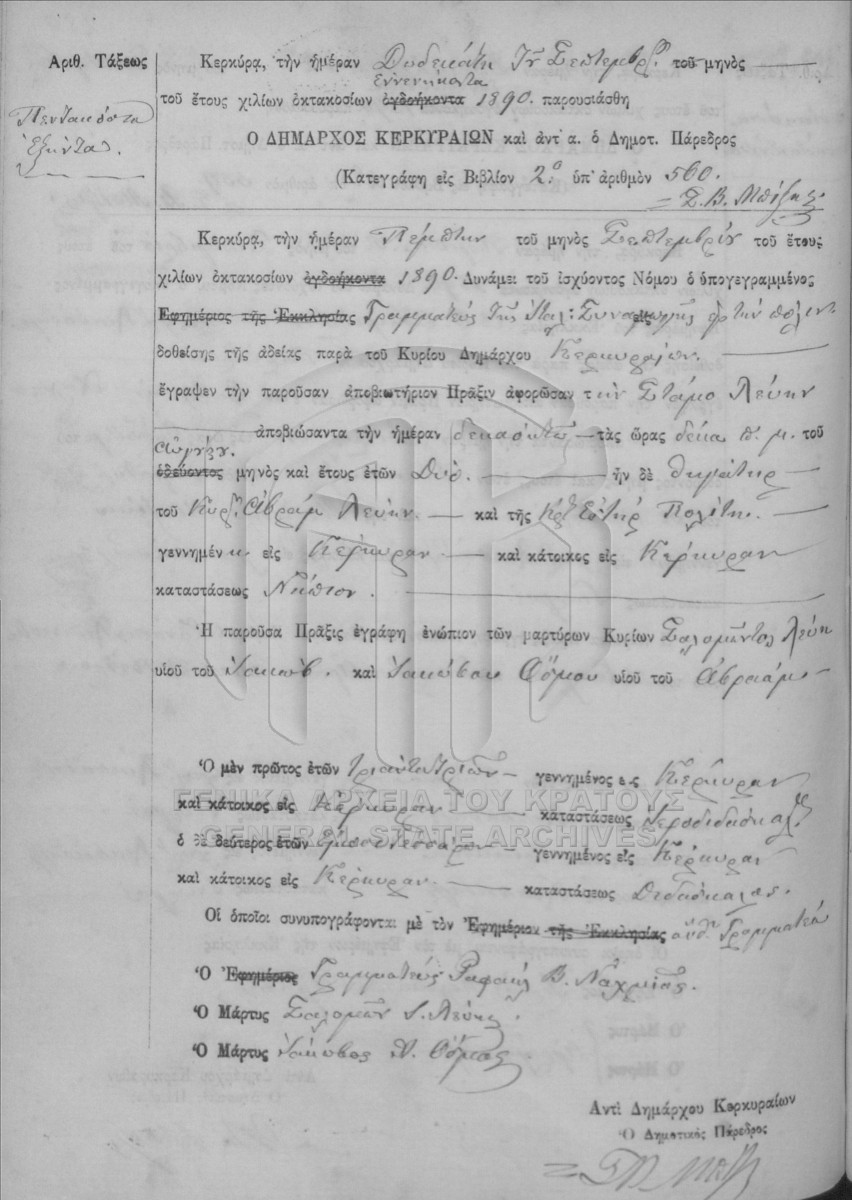 Αριθ. Τάξεως
Πεντακόσια
Ἑξῆντα.
Κερκύρα, τὴν ἡμέραν Δωδεκάτη τοῦ μηνὸς
ἐννενήκοντα
τοῦ ἔτους χιλίων ὀκτακοσίων ὀγδοήκοντα 1890. παρουσιάσθη
Ο ΔΗΜΑΡΧΟΣ ΚΕΡΚΥΡΑΙΩΝ καὶ ἀντ' α. ὁ Δημοτ. Πάρεδρος
(Κατεγράφη εἰς Βιβλίον 2ο. ὑπ' ἀριθμὸν 560.
Κερκύρα, τὴν ἡμέραν Πέμπτην τοῦ μηνὸς Σεπτεμβρίου τοῦ ἔτους
χιλίων ὀκτακοσίων ὀγδοήκοντα 1890. Δυνάμει τοῦ ἰσχύοντος Νόμου ὁ ὑπογεγραμμένος
Ἐφημέριος τῆς Ἐκκλησίας Γραμματεὺς τῆς Ἰταλ: Συναγωγῆς
δοθείσης τῆς ἀδείας παρὰ τοῦ Κυρίου Δημάρχου Κερκυραίων.
ἔγραψεν τὴν παροῦσαν ἀποβιωτήριον Πρᾶξιν ἀφορῶσαν τὴν Στάμο Λεύην
ἀποβιώσαντα τὴν ἡμέραν δεκαοκτὼ τὰς ὥρας δέκα π. μ. τοῦ
Αὐγούστου
ὁδεύοντος μηνὸς καὶ ἔτους ἐτῶν Δύο. ἦν δὲ θυγάτηρ
τοῦ Κυρ. Ἀβρὰμ Λεύη. καὶ τῆς Κας Ἐστὴρ Πολίτη.
γεννημένη εἰς Κέρκυραν καὶ κάτοικος εἰς Κέρκυραν
καταστάσεως Νήπιον.
Ἡ παροῦσα Πρᾶξις ἐγράφη ἐνώπιον τῶν μαρτύρων Κυρίων Σαλομῶντος Λεύη
υἱοῦ τοῦ Ἰακώβ. καὶ Ἰακώβου Ὄσμου υἱοῦ τοῦ Ἀβραὰμ
Ὁ μὲν πρῶτος ἐτῶν τριαντατριῶν γεννημένος εἰς Κέρκυραν
καὶ κάτοικος εἰς Κέρκυραν καταστάσεως Ἱεροδιδάσκαλος
ὁ δὲ δεύτερος ἐτῶν εἰκοσιτεσσάρων γεννημένος εἰς Κέρκυραν
καὶ κάτοικος εἰς Κέρκυραν. καταστάσεως Διδάσκαλος.
Οἱ ὁποῖοι συνυπογράφονται μὲ τὸν Ἐφημέριον τῆς Ἐκκλησίας Γραμματέα
Ὁ Ἐφημέριος Γραμματεὺς Ραφαὴλ Β. Ναχμίας.
Ὁ Μάρτυς Σαλομῶν Ι. Λεύης.
Ὁ Μάρτυς Ἰάκωβος Α. Ὄσμος.
Αντὶ Δημάρχου Κερκυραίων
Ὁ Δημοτικὸς Πάρεδρος
ΓΕΝΙΚΑ ΑΡΧΕΙΑ ΤΟΥ ΚΡΑΤΟΥΣ
GENERAL STATE ARCHIVES